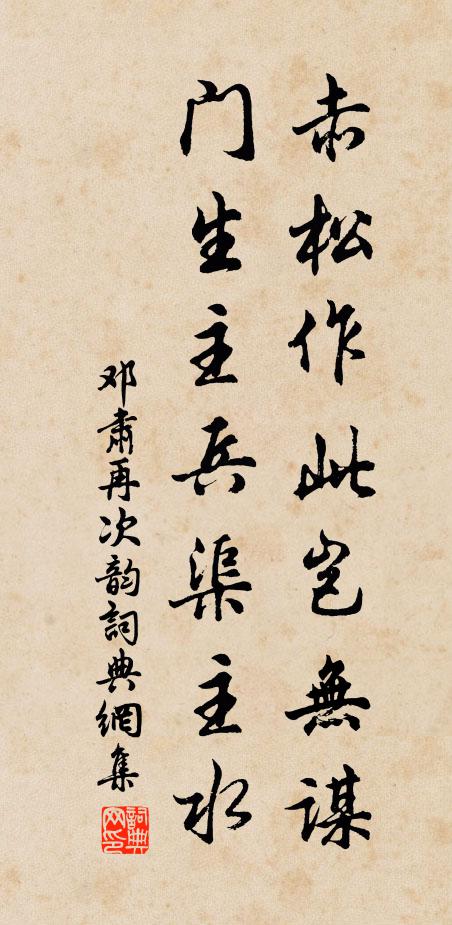 赤松作此岂無謀
门生主兵渠主水
邓肃再次韵詞典網集
詞典网印